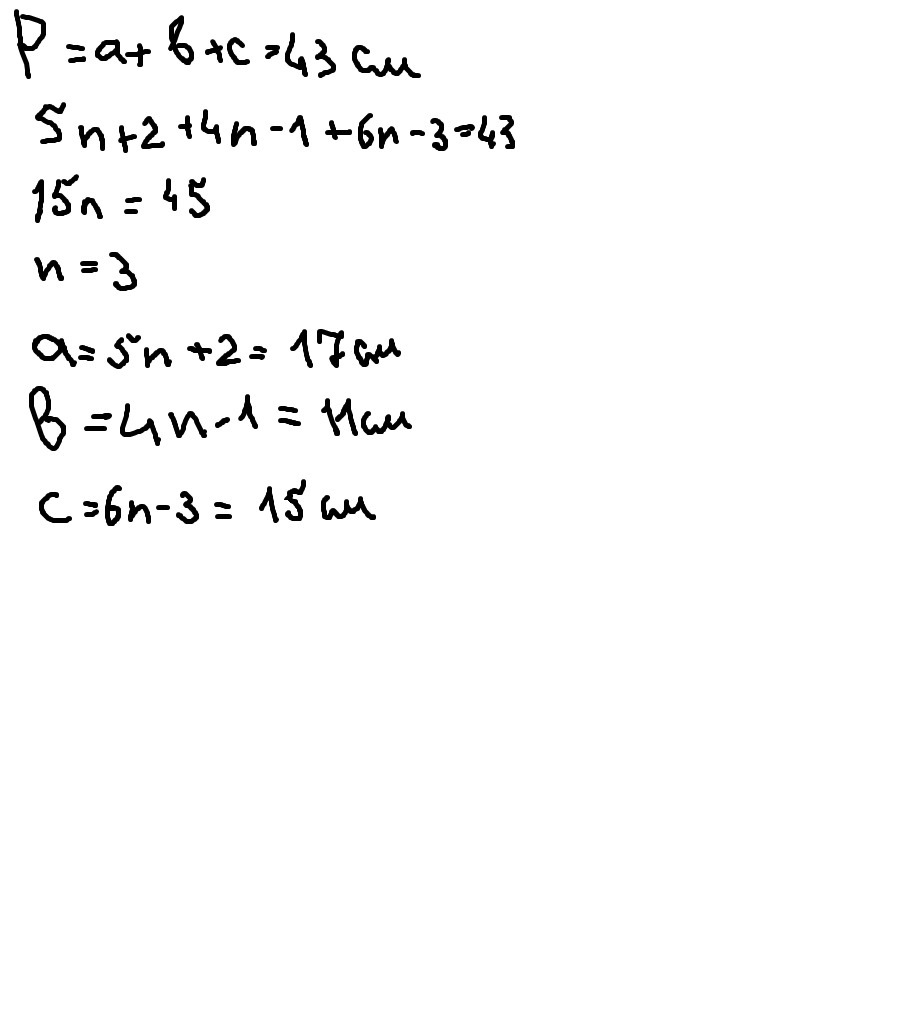 P = a + b + c = 43 см
5n+2+4n-1+6n-3=43
15n = 45
n = 3
a = 5n + 2 = 17 см
b = 4n - 1 = 11 см
c = 6n - 3 = 15 см